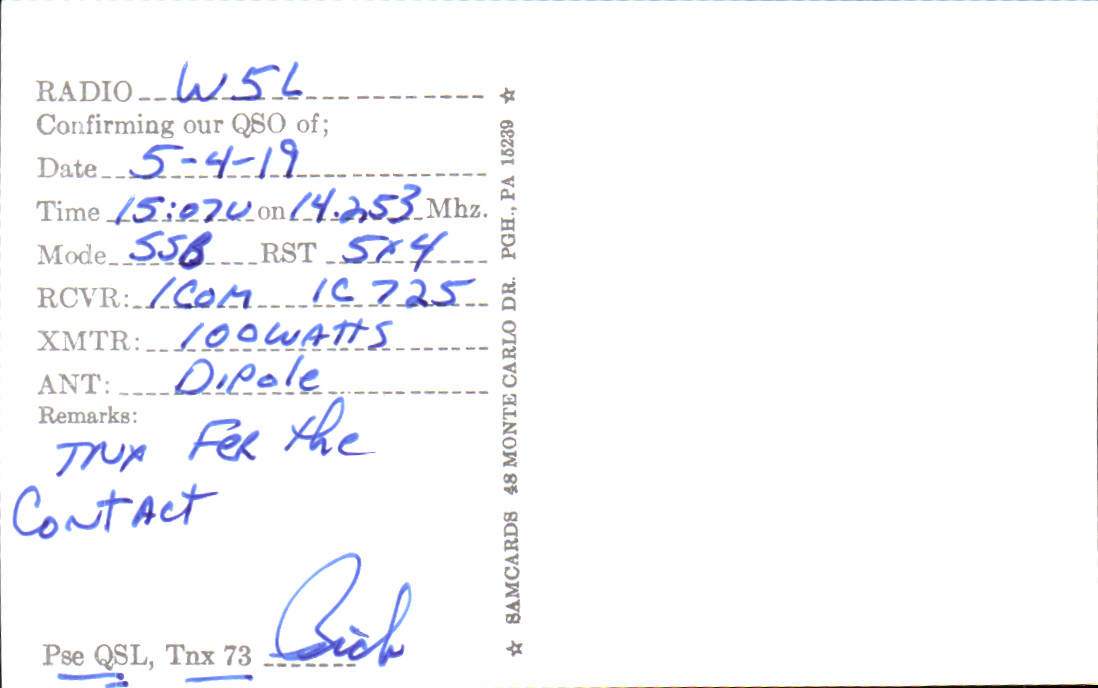 RADIO W5L
Confirming our QSO of;
Date 5-4-19
Time 15:07U on 14.253 Mhz.
Mode SSB RST 5x4
RCVR: ICOM IC 725
XMTR: 100 WATTS
ANT: Dipole
Remarks:
TNX FER the
Contact
Pse QSL, Tnx 73 Rich
☆ SAMCARDS 48 MONTE CARLO DR. PGH., PA 15239 ☆